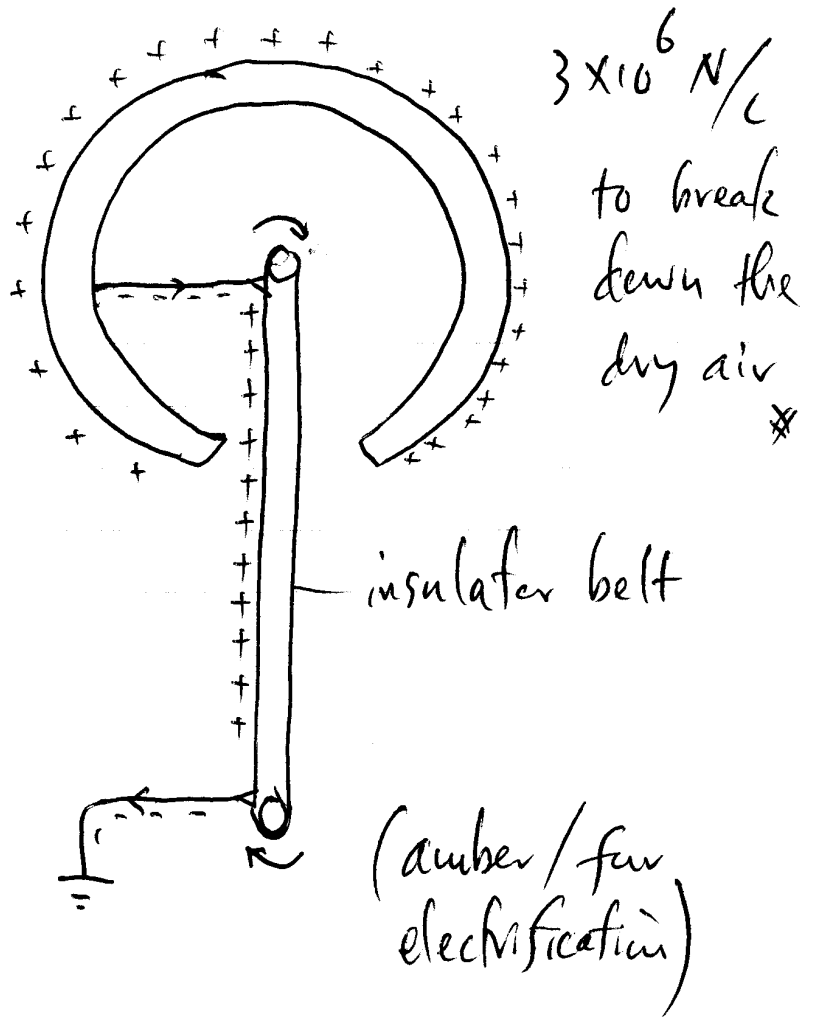 3×10⁶ N/C
to break
down the
dry air
insulator belt
(amber/fur
electrification)